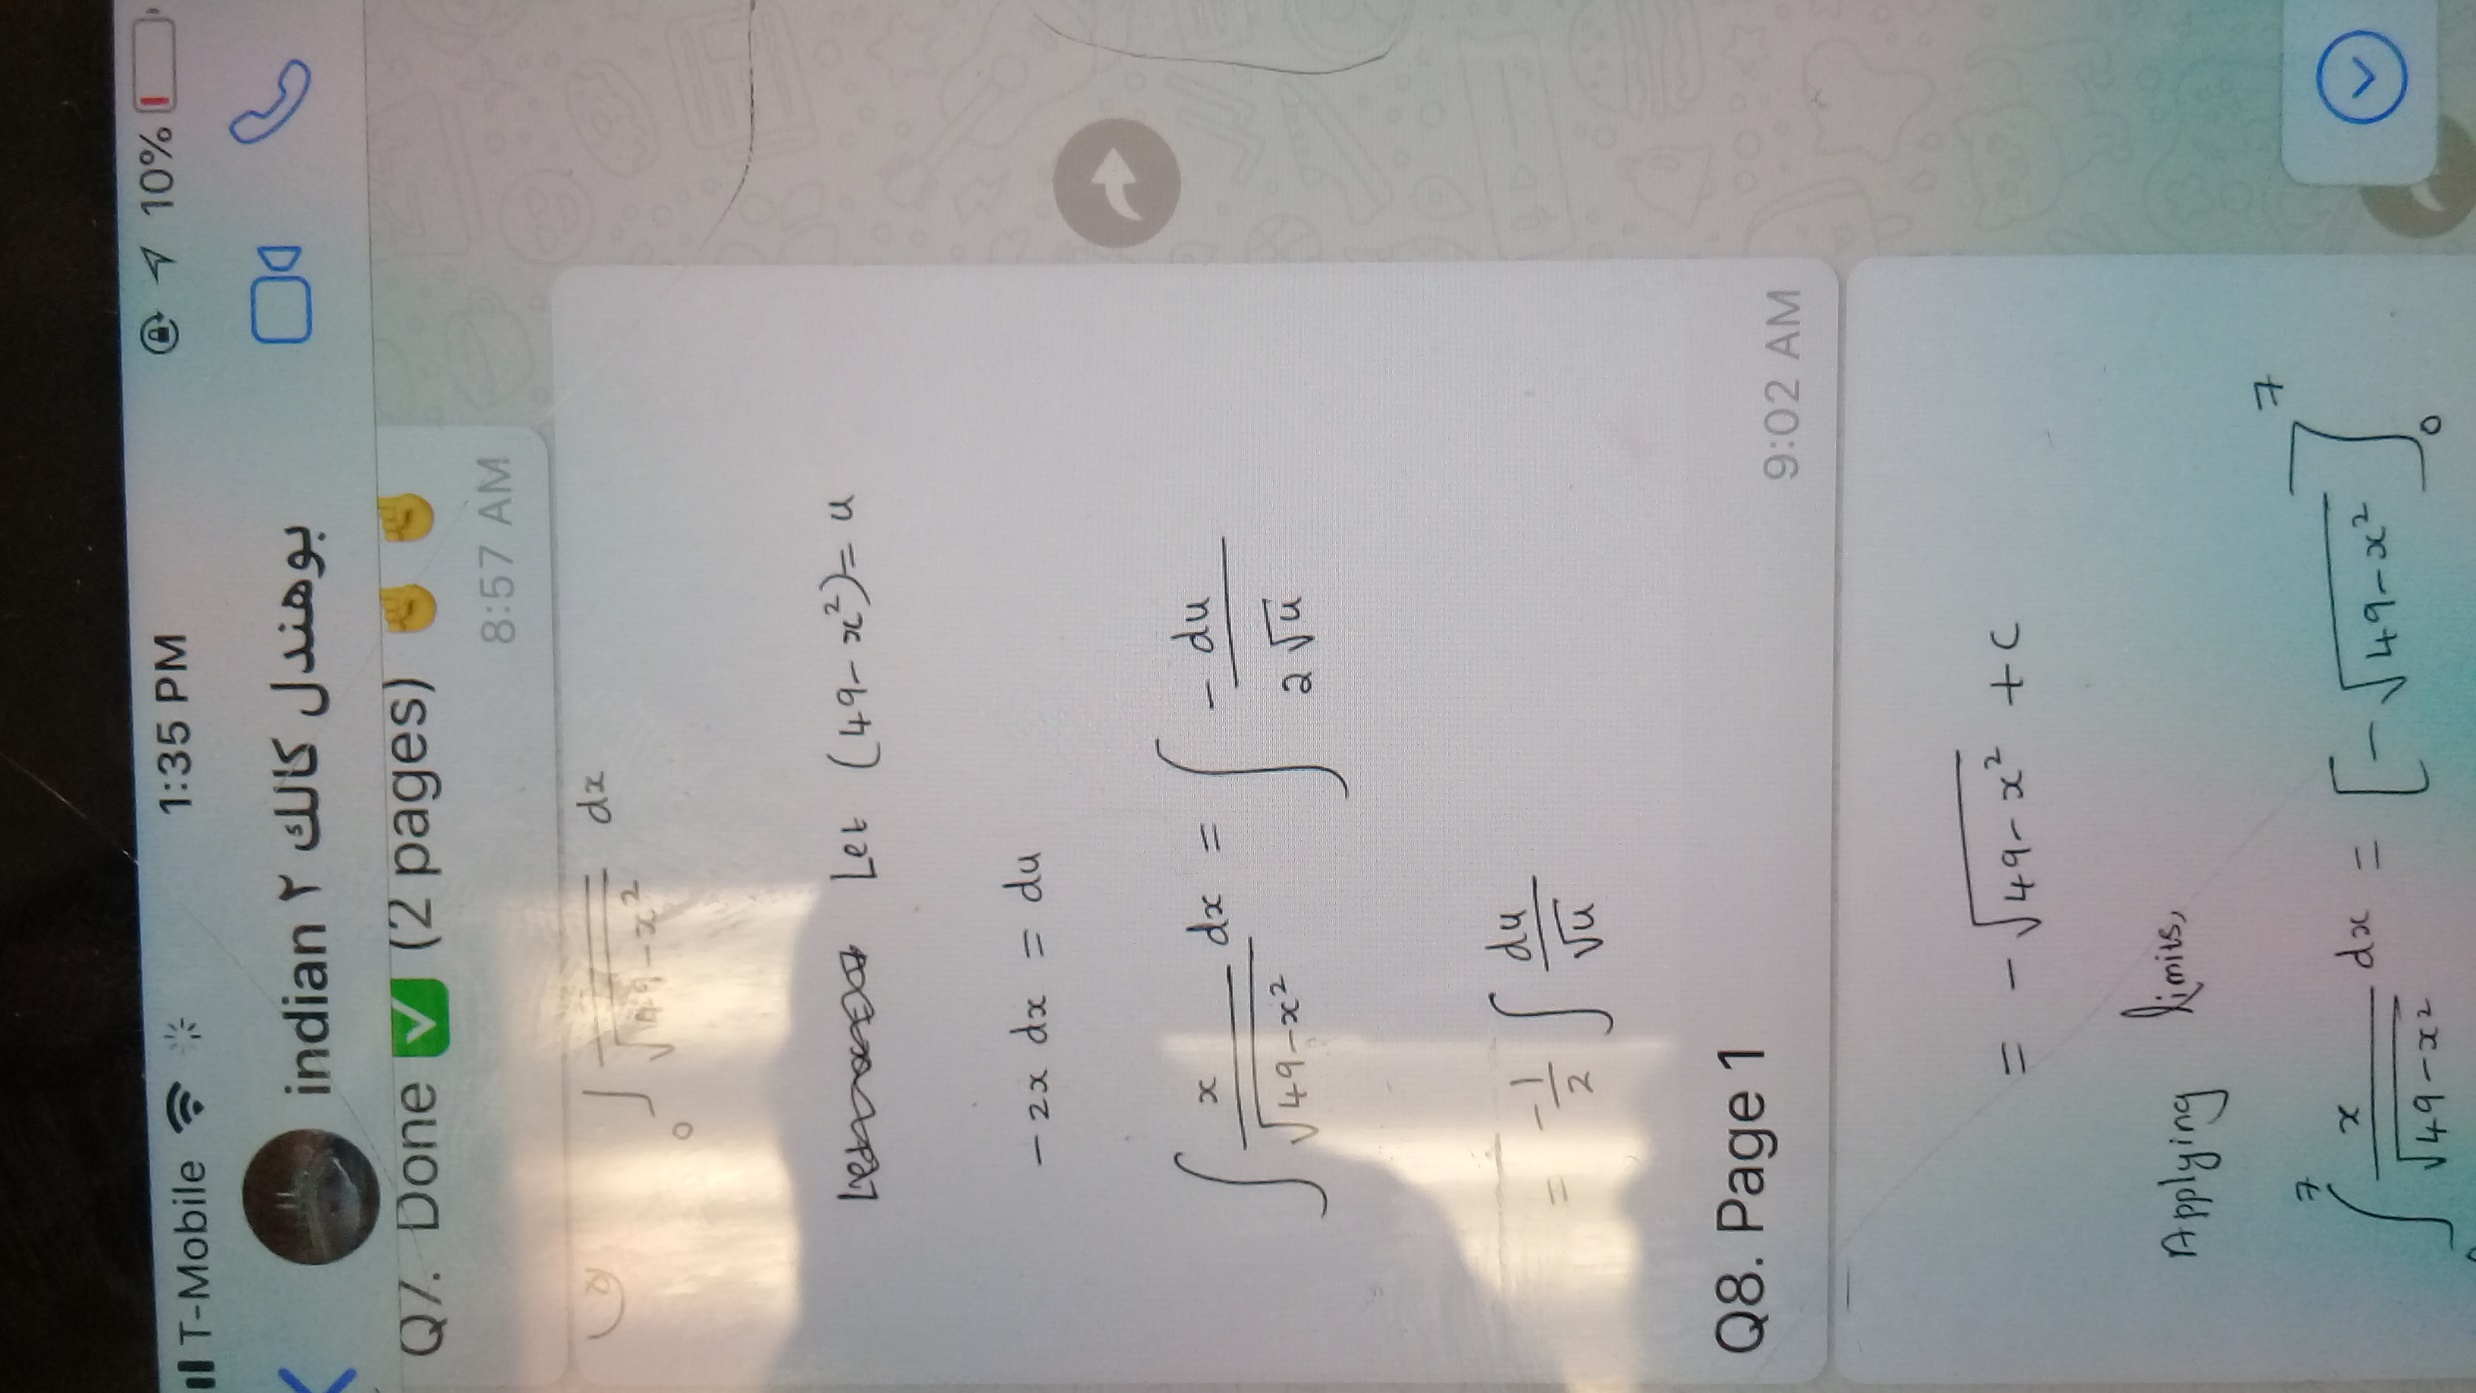 T-Mobile 1:35 PM 10%
indian بوهندل كالك ٢
Q7. Done ✅ (2 pages) ✊ ✊
8:57 AM
∫₀ / √49-x² dx
Let (49-x²) = u
-2x dx = du
∫ x/√49-x² dx = ∫ -du/2√u
= -1/2 ∫ du/√u
Q8. Page 1
9:02 AM
= -√49-x² + C
Applying limits,
∫⁷ x/√49-x² dx = [-√49-x²]₀⁷